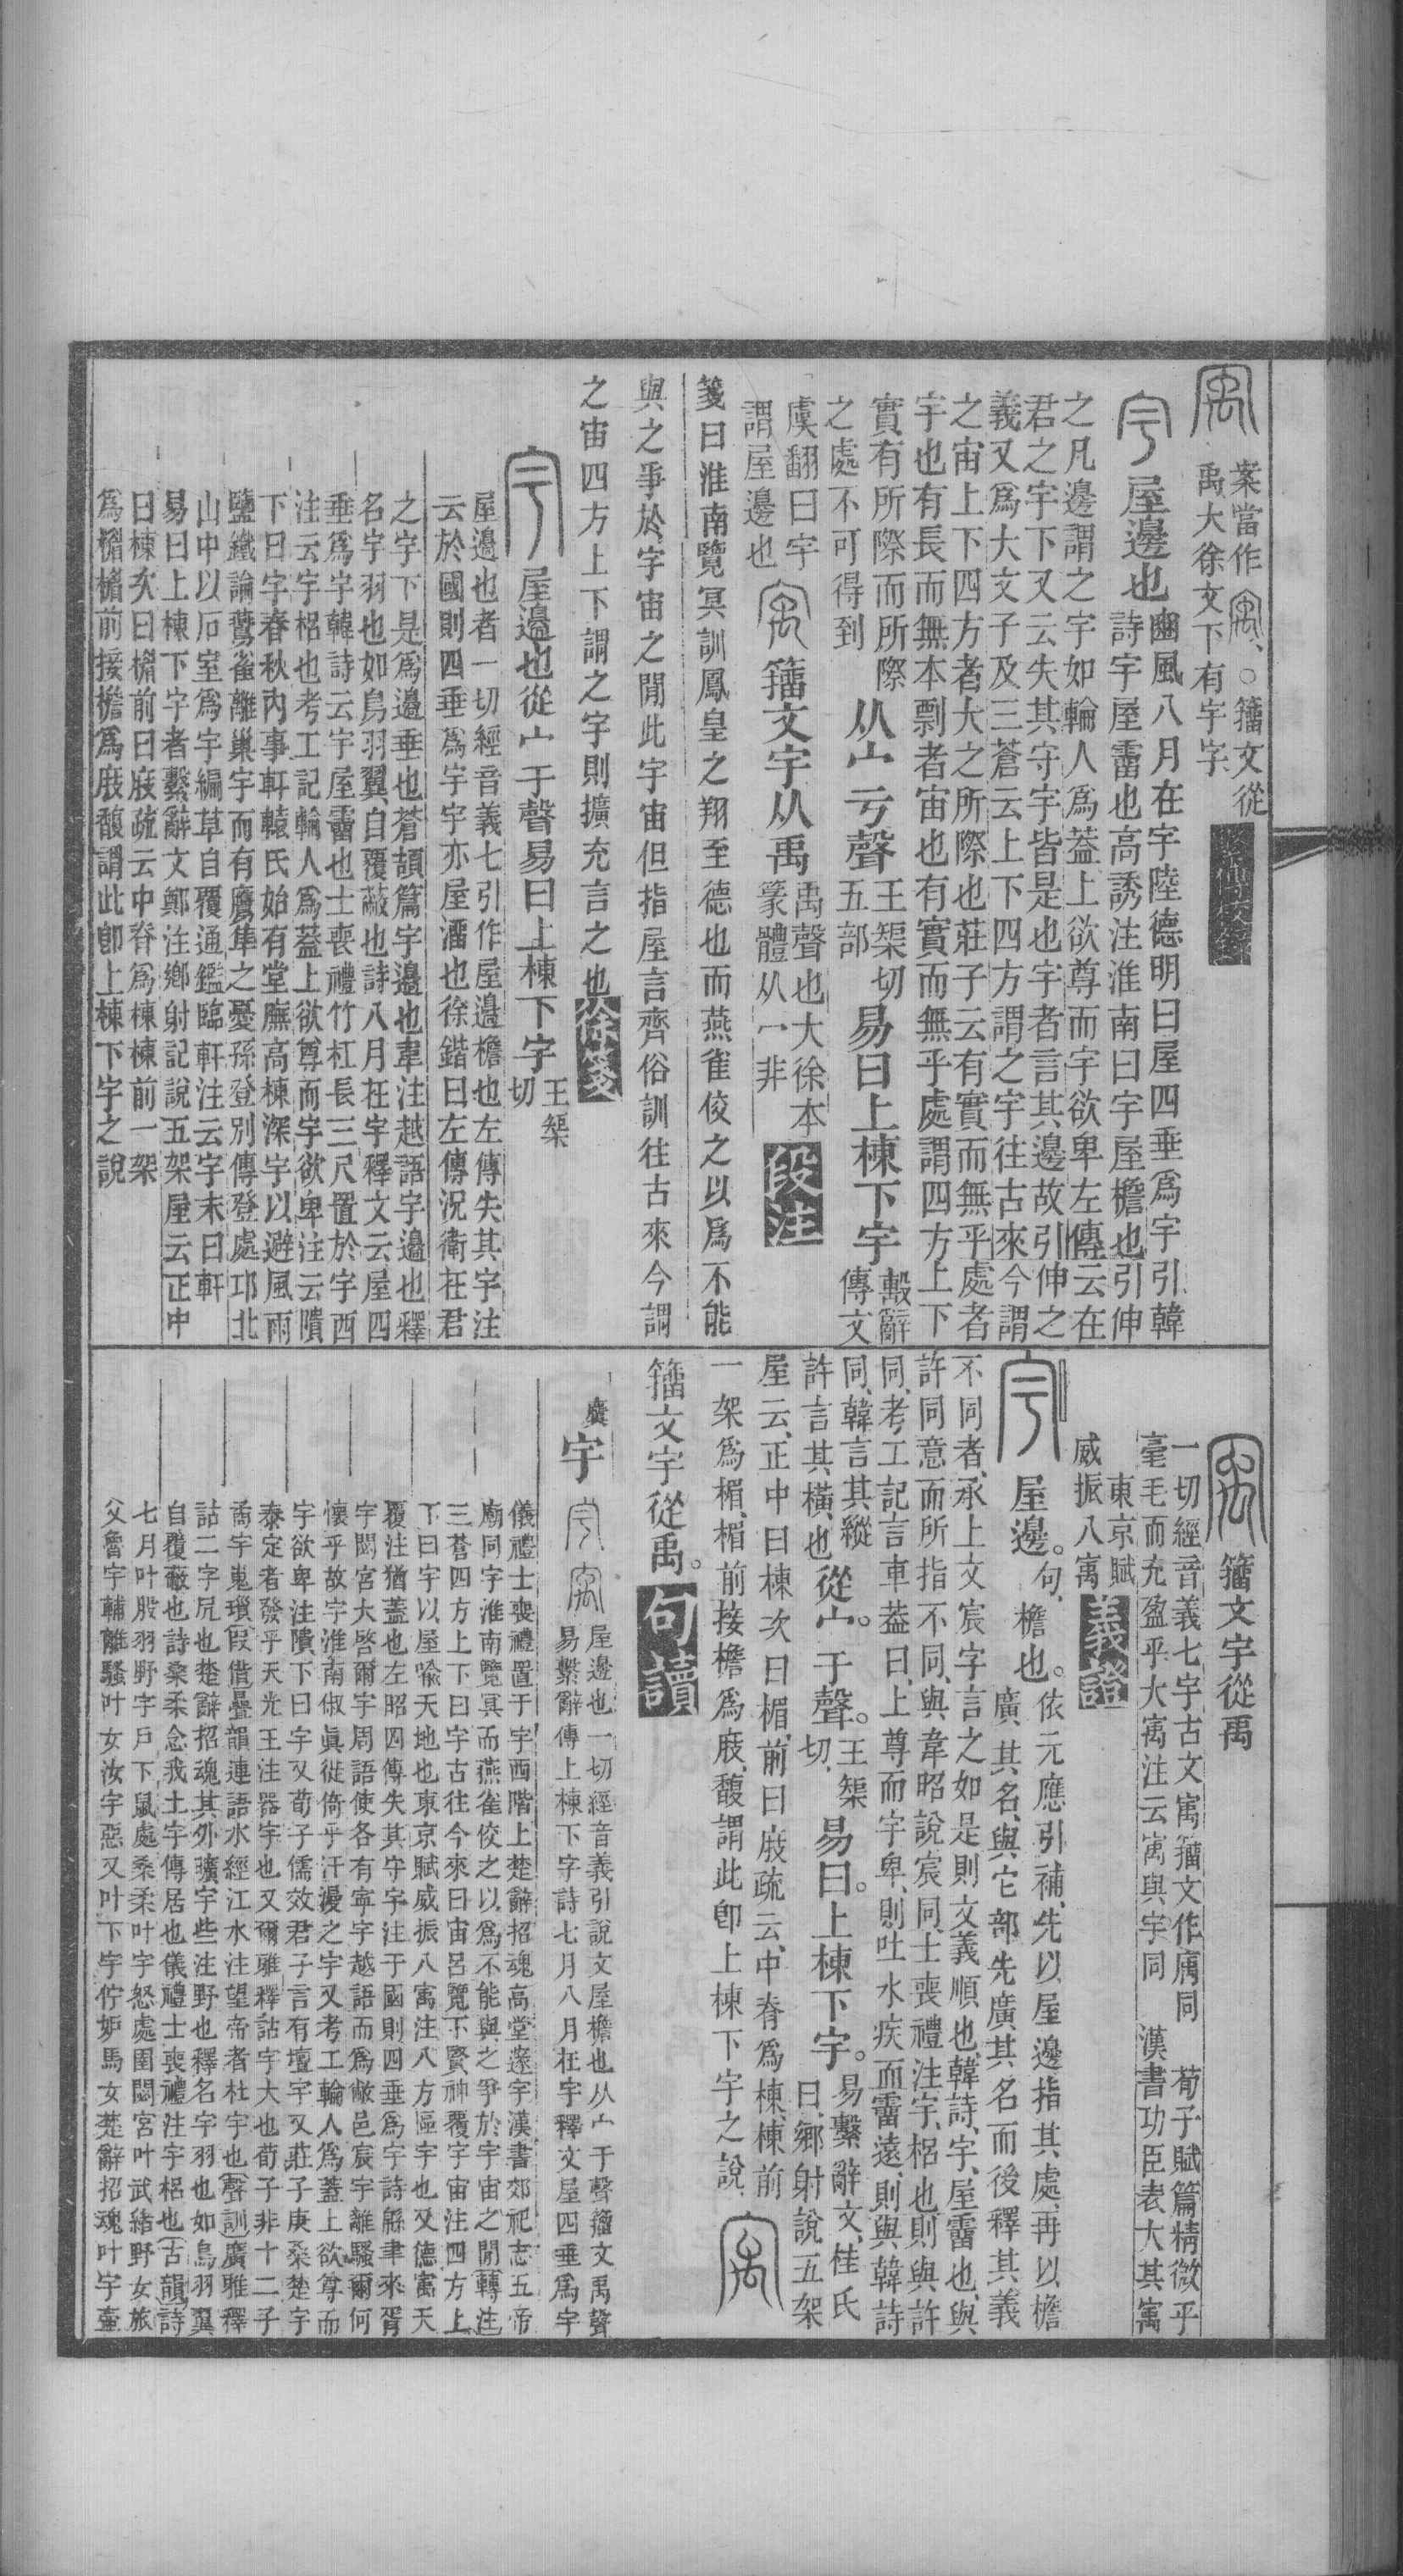 案當作𡩄、○籒文從
禹大徐文下有宇字
宇屋邊也
豳風八月在宇陸德明曰屋四垂爲宇引韓
詩宇屋霤也高誘注淮南曰宇屋檐也引伸
之凡邊謂之宇如輪人爲葢上欲尊而宇欲卑左傳云在
君之宇下又云失其守宇皆是也宇者言其邊故引伸之
義又爲大文子及三蒼云上下四方謂之宇往古來今謂
之宙上下四方者大之所際也莊子云有實而無乎處者
宇也有長而無本剽者宙也有實而無乎處謂四方上下
實有所際而所際
之處不可得到
从宀亏聲
王榘切
五部
易曰上棟下宇
毄辭
傳文
虞翻曰宇
謂屋邊也
𡩄籒文宇从禹
禹聲也大徐本
篆體从一非
段注
箋曰淮南覽冥訓鳳皇之翔至德也而燕雀佼之以爲不能
與之爭於宇宙之閒此宇宙但指屋言齊俗訓往古來今謂
之宙四方上下謂之宇則擴充言之也徐箋
宇屋邊也從宀于聲易曰上棟下宇
王榘
切
屋邊也者一切經音義七引作屋邊檐也左傳失其宇注
云於國則四垂爲宇宇亦屋霤也徐鍇曰左傳況衛在君
之宇下是爲邊垂也蒼頡篇宇邊也韋注越語宇邊也釋
名宇羽也如鳥羽翼自覆蔽也詩八月在宇釋文云屋四
垂爲宇韓詩云宇屋霤也士喪禮竹杠長三尺置於宇西
注云宇梠也考工記輪人爲葢上欲尊而宇欲卑注云隤
下曰宇春秋內事軒轅氏始有堂廡高棟深宇以避風雨
鹽鐵論鷰雀離巢宇而有鷹隼之憂孫登別傳登處邙北
山中以石室爲宇編草自覆通鑑臨軒注云宇末曰軒
易曰上棟下宇者繫辭文鄭注鄉射記說五架屋云正中
曰棟次曰楣前曰庪疏云中脊爲棟棟前一架
爲楣楣前接檐爲庪馥謂此卽上棟下宇之說
𡩄籒文宇從禹
一切經音義七宇古文㝢籒文作㢏同　荀子賦篇精微乎
毫毛而充盈乎大㝢注云㝢與宇同　漢書功臣表大其㝢
東京賦
威振八㝢
義證
宇屋邊。句、檐也。
依元應引補、先以屋邊指其處、再以檐
廣其名、與它部先廣其名而後釋其義
不同者、承上文宸字言之如是則文義順也、韓詩、宇、屋霤也、與
許同意而所指不同、與韋昭說宸同、士喪禮注、宇、梠也、則與許
同、考工記言車葢曰、上尊而宇卑、則吐水疾而霤遠、則與韓詩
同、韓言其縱
許言其橫也
從宀。于聲。
王榘
切、
易曰。上棟下宇。
易繫辭文、桂氏
曰、鄉射說五架
屋云、正中曰棟次曰楣、前曰庪疏云、中脊爲棟、棟前
一架爲楣、楣前接檐爲庪、馥謂此卽上棟下宇之說、
𡩄
籒文宇從禹。句讀
宇
屋邊也一切經音義引說文屋檐也从宀于聲籒文禹聲
易繫辭傳上棟下宇詩七月八月在宇釋文屋四垂爲宇
儀禮士喪禮置于宇西階上楚辭招魂高堂邃宇漢書郊祀志五帝
廟同宇淮南覽冥而燕雀佼之以爲不能與之爭於宇宙之閒轉注
三蒼四方上下曰宇古往今來曰宙呂覽下賢神覆宇宙注四方上
下曰宇以屋喻天地也東京賦威振八㝢注八方區宇也又德㝢天
覆注猶蓋也左昭四傳失其守宇注于國則四垂爲宇詩緜聿來胥
宇閟宮大啓爾宇周語使各有寧宇越語而爲敝邑宸宇離騷爾何
懷乎故宇淮南俶眞徙倚乎汗漫之宇又考工輪人爲蓋上欲尊而
宇欲卑注隤下曰宇又荀子儒效君子言有壇宇又莊子庚桑楚宇
泰定者發乎天光王注器宇也又爾雅釋詁宇大也荀子非十二子
矞宇嵬瑣假借疊韻連語水經江水注望帝者杜宇也聲訓廣雅釋
詁二宇凥也楚辭招魂其外曠宇些注野也釋名宇羽也如鳥羽翼
自覆蔽也詩桑柔念我土宇傳居也儀禮士喪禮注宇梠也古韻詩
七月叶股羽野宇戶下鼠處桑柔叶宇怒處圉閟宮叶武緒野女旅
父魯宇輔離騷叶女汝宇惡又叶下宇佇妒馬女楚辭招魂叶宇壷